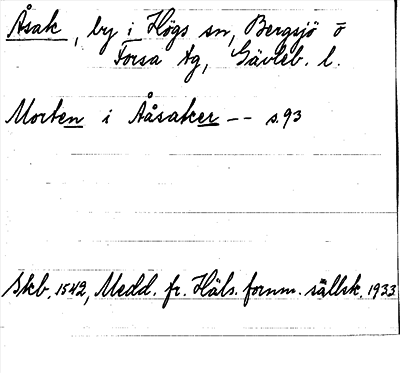 Åsak, by i Högs sn, Bergsjö o
Forsa tg, Gävleb. l.
Morten i Ååsaker -- s. 93
Skb. 1542, Medd. fr. Häls. fornm. sällsk. 1933